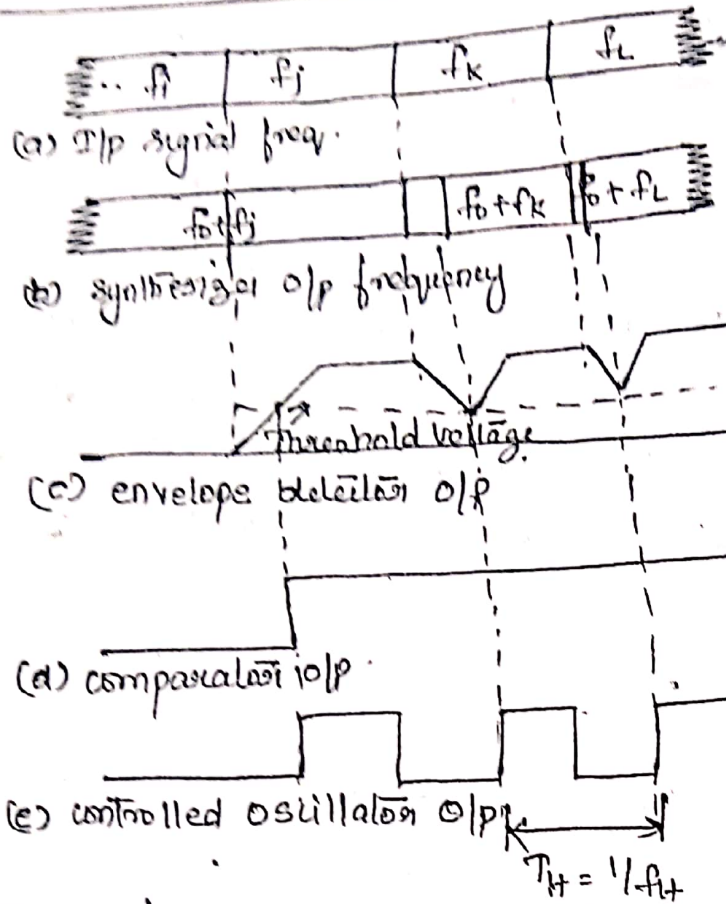 .. fi fj fk fL
(a) I/p signal freq.
fo+fj fo+fk fo+fL
(b) synthesizer o/p frequency
Threshold voltage
(c) envelope detector o/p
(d) comparator o/p
(e) controlled oscillator o/p
TH = 1/fH